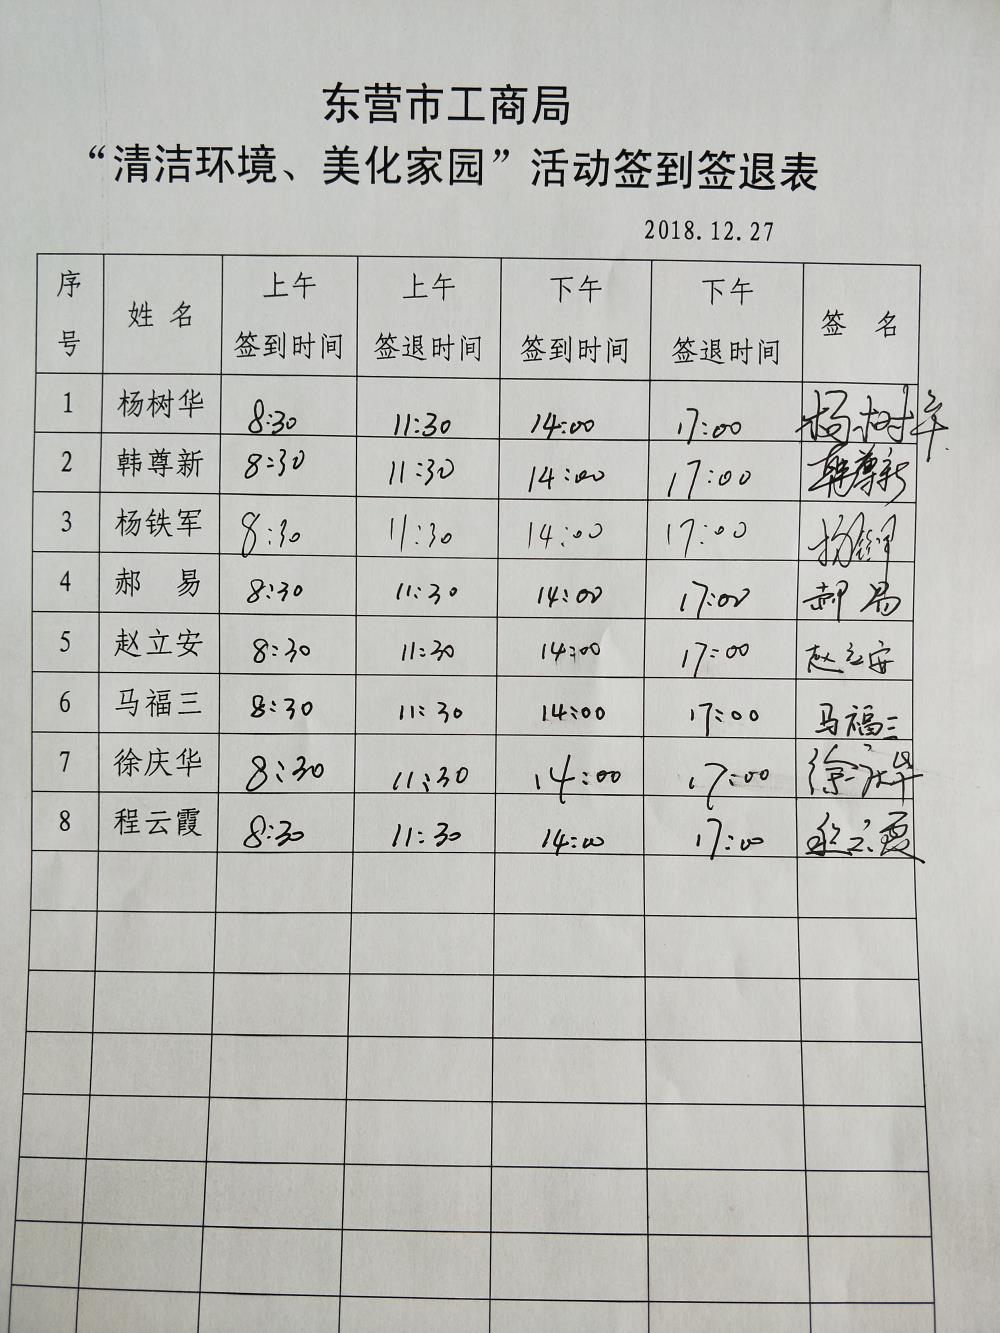 东营市工商局
“清洁环境、美化家园”活动签到签退表
2018.12.27
序号 姓 名 上午签到时间 上午签退时间 下午签到时间 下午签退时间 签 名
1 杨树华 8:30 11:30 14:00 17:00 杨树华
2 韩尊新 8:30 11:30 14:00 17:00 韩尊新
3 杨铁军 8:30 11:30 14:00 17:00 杨铁军
4 郝 易 8:30 11:30 14:00 17:00 郝易
5 赵立安 8:30 11:30 14:00 17:00 赵立安
6 马福三 8:30 11:30 14:00 17:00 马福三
7 徐庆华 8:30 11:30 14:00 17:00 徐庆华
8 程云霞 8:30 11:30 14:00 17:00 程云霞